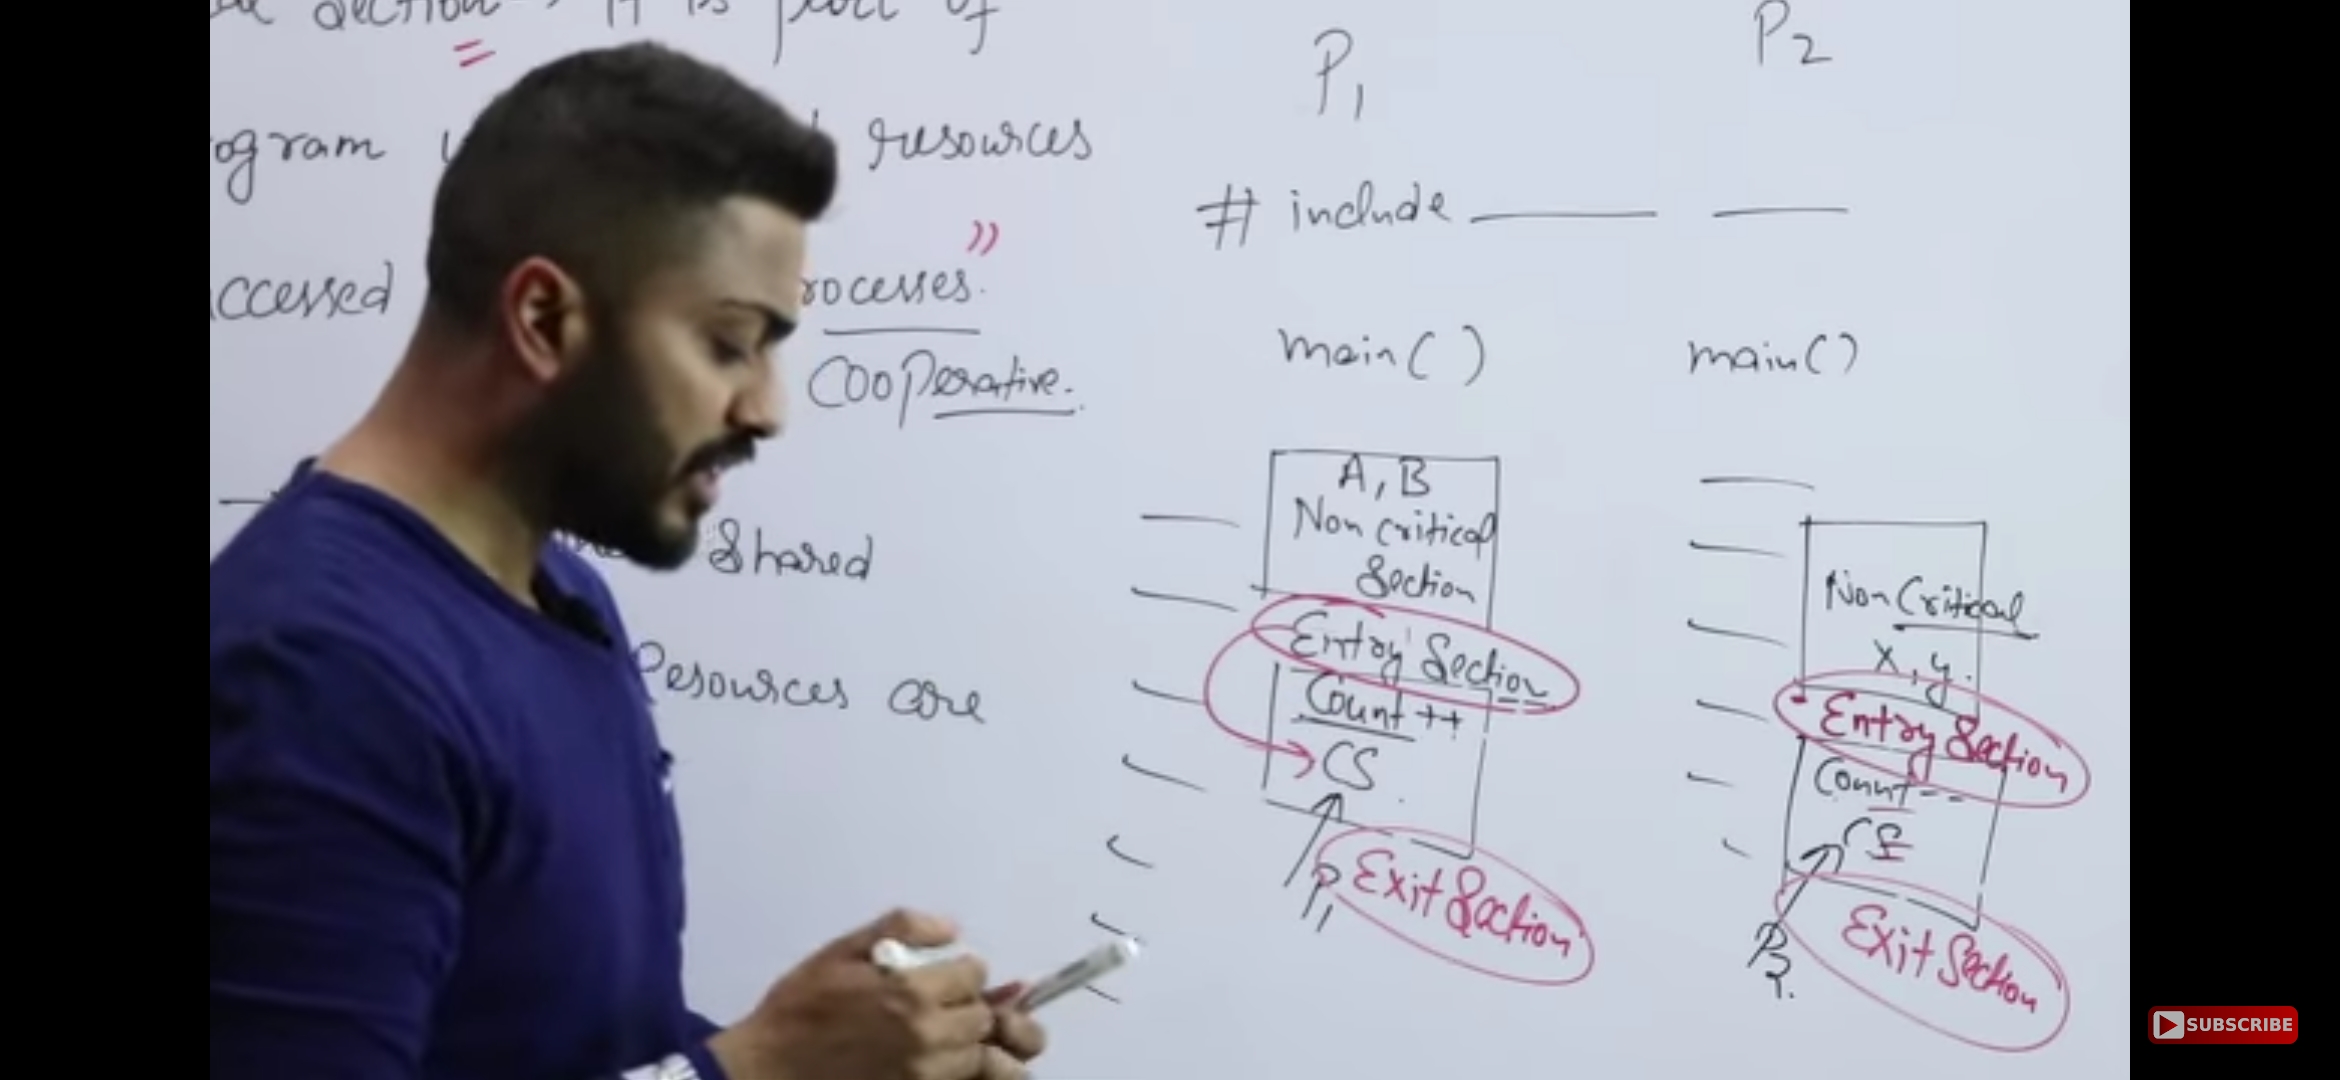 Section : It is part of
program resources
accessed processes. "
Cooperative.
Shared
Resources are
P1
# include
main()
A, B
Non critical
Section
Entry Section
Count ++
CS
P1
Exit Section
P2
main()
Non Critical
X, y.
Entry Section
Count --
CS
P2.
Exit Section
SUBSCRIBE